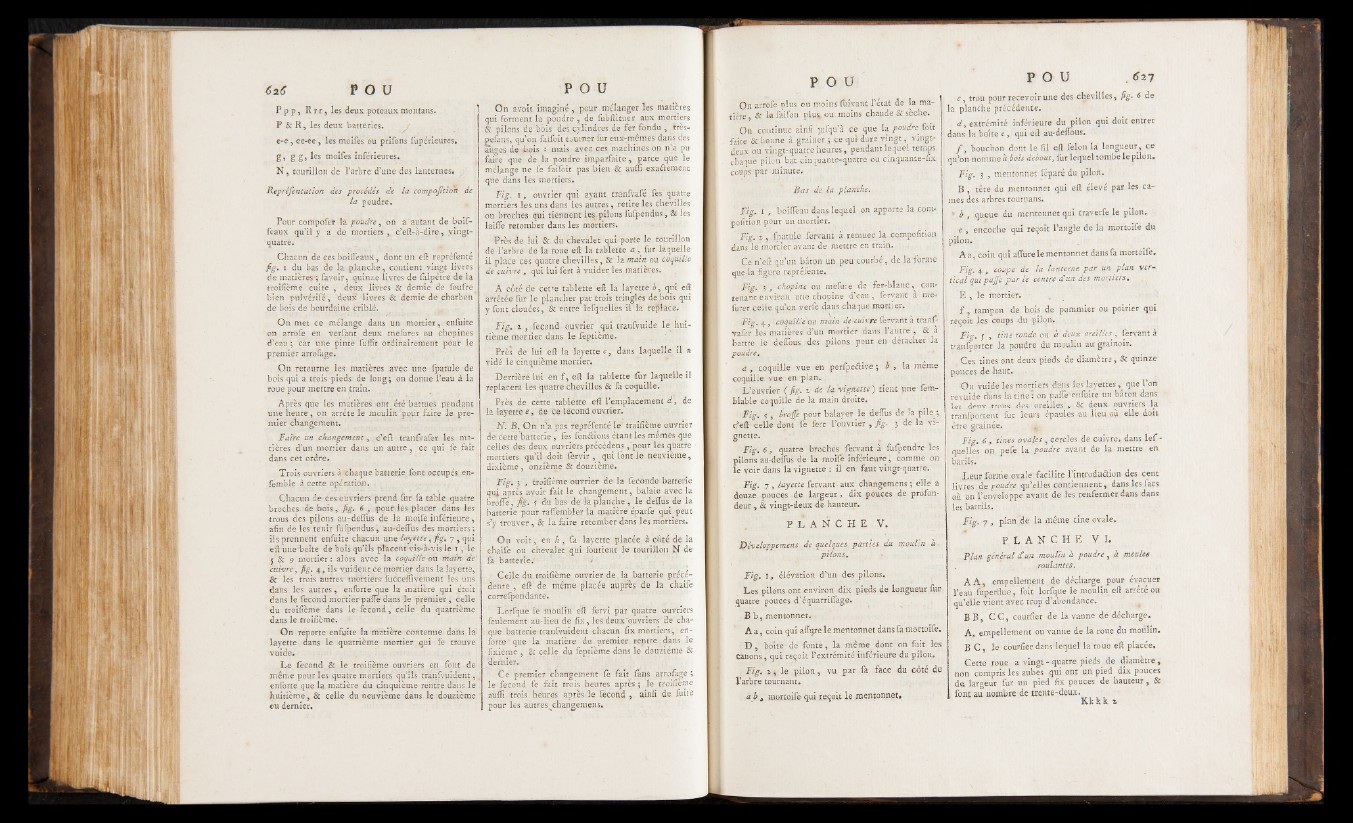 626 POU
P p p, R r r, les deux poteaux montans.
P & R, les deux batteries.
e-e, ee-ee, les moifes ou prifons fupérieures.
g, g g, les moifes inférieures.
N, tourillon de l'arbre d'une des lanternes.
Repréfentation des procédés de la compofition de
la poudre.
Pour compofer la poudre, on a autant de boif-
feaux qu'il y a de mortiers, c'eft-à-dire, vingt-
quatre.
Chacun de ces boiffeaux, dont un eft repréfenté
fig. 1 du bas de la planche, contient vingt livres
de matières; favoir, quinze livres de falpêtre de la
troifième cuite, deux livres & demie de foufre
bien pulvérifé, deux livres & demie de charbon
de bois de bourdaine criblé.
On met ce mélange dans un mortier, enfuite
on arrofe en verfant deux mefures ou chopines
d'eau; car une pinte fuffit ordinairement pour le
premier arrofage.
On retourne les matières avec une fpatule de
bois qui a trois pieds de long; on donne l'eau à la
roue pour mettre en train.
Après que les matières ont été battues pendant
une heure, on arrête le moulin pour faire le pre-
mier changement.
Faire un changement, c'eft tranfvafer les ma-
tières d'un mortier dans un autre, ce qui fe fait
dans cet ordre.
Trois ouvriers à chaque batterie font occupés en-
femble à cette opération.
Chacun de ces ouvriers prend fur fa table quatre
broches de bois, fig. 6, pour les placer dans les
trous des pilons au-deffus de la moife inférieure,
afin de les tenir fufpendus, au-deffus des mortiers:
ils prennent enfuite chacun une layette, fig. 7, qui
eft une boîte de bois qu'ils placent vis-à-vis le 1, le
5 & 9 mortier: alors avec la coquille ou main de
cuivre, fig. 4, ils vuident ce mortier dans la layette,
& les trois autres mortiers fucceffivement les uns
dans les autres, enforte que la matière qui étoit
dans le fecond mortier paffe dans le premier, celle
du troifième dans le fecond, celle du quatrième
dans le troifième.
On reporte enfuite la matière contenue dans la
layette dans le quatrième mortier qui fe trouve
vuide.
Le fecond & le troifième ouvriers en font de
même pour les quatre mortiers qu'ils tranfvuident,
enforte que la matière du cinquième rentre dans le
huitième, & celle du neuvième dans le douzième
ou dernier.
POU
On avoit imaginé, pour mélanger les matières
qui forment la poudre, de fubftituer aux mortiers
& pilons de bois des cylindres de fer fondu, très-
pefans, qu'on faifoit tourner fur eux-mêmes dans des
auges de bois: mais avec ces machines on n'a pu
faire que de la poudre imparfaite, parce que le
mélange ne fe faifoit pas bien & auffi exactement
que dans les mortiers.
Fig. 1, ouvrier qui ayant tranfvafé fes quatre
mortiers les uns dans les autres, retire les chevilles
ou broches qui tiennent les pilons fufpendus, & les
laiffe retomber dans les mortiers.
Près de lui & du chevalet qui porte le tourillon
de l'arbre de la roue eft la tablette a, fur laquelle
il place ces quatre chevilles, & la main ou coquille
de cuivre, qui lui fert à vuider les matières.
A côté de cette tablette eft la layette b, qui eft
arrêtée fur le plancher par trois tringles de bois qui
y font clouées, & entre lefquelles il la replace.
Fig. 2, fecond ouvrier qui tranfvuide le hui-
tième mortier dans le feptième.
Près de lui eft la layette e, dans laquelle il a
vidé le cinquième mortier.
Derrière lui en f, eft la tablette fur laquelle il
replacera les quatre chevilles & fa coquille.
Près de cette tablette eft l'emplacement d, de
la layette e, de ce fecond ouvrier.
N. B. On n'a pas repréfenté le troifième ouvrier
de cette batterie, fes fonctions étant les mêmes que
celles des deux ouvriers précédens, pour les quatre
mortiers qu'il doit fervir, qui font le neuvième,
dixième, onzième & douzième.
Fig. 3, troifième ouvrier de la feconde batterie
qui, après avoir fait le changement, balaie avec la
broffe, fig. 5 du bas de la planche, le deffus de la
batterie pour raffembler la matière éparfe qui peut
s'y trouver, & la faire retomber dans les mortiers.
On voit, en h, fa layette placée à côté de la
chaife ou chevalet qui foutient le tourillon N de
fa batterie.
Celle du troifième ouvrier de la batterie précé-
dente, eft de même placée auprès de la chaife
correfpondante.
Lorfque le moulin eft fervi par quatre ouvriers
feulement au-lieu de fix, les deux ouvriers de cha-
que batterie tranfvuident chacun fix mortiers, en-
forte que la matière du premier rentre dans le
fixième, & celle du feptième dans le douzième &
dernier.
Ce premier changement fe fait fans arrofage;
le fecond fe fait trois heures après; le troifième
auffi trois heures après le fecond, ainfi de fuite
pour les autres changemens.
POU
On arrofe plus ou moins fuivant l'état de la ma-
tière, & la faifon plus ou moins chaude & sèche.
On continue ainfi jufqu'à ce que la poudre foit
faire & bonne à grainer; ce qui dure vingt, vingt-
deux ou vingt-quatre heures, pendant lequel temps
chaque pilon bat cinquante-quatre ou cinquante-fix
coups par minute.
Bas de la planche.
Fig. 1, boiffeau dans lequel on apporte la com-
pofition pour un mortier.
Fig. 2, fpatule fervant à remuer la compofition
dans le mortier avant de mettre en train.
Ce n'eft qu'on bâton un peu courbé, de la forme
que la figure repréfente.
Fig. 3, chopine ou mefure de fer-blanc, con-
tenant environ une chopine d'eau, fervant à me-
furer celle qu'on verfe dans chaque mortier.
Fig. 4, coquille ou main de cuivre fervant à tranf-
vafer les matières d'un mortier dans l'autre, & à
battre le deffous des pilons pour en détacher la
poudre.
a, coquille vue en perfpective; b, la même
coquille vue en plan.
L'ouvrier (fig. 2 de la vignette) tient une fem-
blable coquille de la main droite.
Fig. 5, broffe pour balayer le deffus de la pile;
c'eft celle dont fe fert l'ouvrier, fig. 3 de la vi-
gnette.
Fig. 6, quatre broches fervant à fufpendre les
pilons au-deffus de la moife inférieure, comme on
le voir dans la vignette: il en faut vingt-quatre.
Fig. 7, layette fervant aux changemens; elle a
douze pouces de largeur, dix pouces de profon-
deur, & vingt-deux de hauteur.
PLANCHE V.
Développement de quelques parties du moulin à
pilons.
Fig. 1, élévation d'un des pilons.
Les pilons ont environ dix pieds de longueur fur
quatre pouces d'équarriffage.
B b, mentonnet.
A a, coin qui affure le mentonnet dans fa mortoife.
D, boîte de fonte, la même dont on fait les
canons, qui reçoit l'extrémité inférieure du pilon.
Fig. 2, le pilon, vu par fa face du côté de
l'arbre tournant.
a b, mortoife qui reçoit le mentonnet.
POU 627
c, trou pour recevoir une des chevilles, fig. 6 de
la planche précédente.
d, extrémité inférieure du pilon qui doit entrer
dans la boîte e, qui eft au-deffous.
f, bouchon dont le fil eft felon la longueur, ce
qu'on nomme à bois debout, fur lequel tombe le pilon.
Fig. 3, mentonnet féparé du pilon.
B, tête du mentonnet qui eft élevé par les ca-
mes des arbres tournans.
b, queue du mentonnet qui traverfe le pilon.
c, encoche qui reçoit l'angle de la mortoife du
pilon.
A a, coin qui affure le mentonnet dans fa mortoife.
Fig. 4, coupe de la lanterne par un plan ver-
tical qui paffe par le centre d'un des mortiers.
E, le mortier.
f, tampon de bois de pommier ou poirier qui
reçoit les coups du pilon.
Fig. 5, tine ronde ou à deux oreilles, fervant à
tranfporter la poudre du moulin au grainoir.
Ces tines ont deux pieds de diamètre, & quinze
pouces de haut.
On vuide les mortiers dans les layettes, que l'on
revuide dans la tine: on paffe enfuite un bâton dans
les deux trous des oreilles, & deux ouvriers la
tranfportent fur leurs épaules au lieu où elle doit
être grainée.
Fig. 6, tines ovales, cerclés de cuivre, dans lef-
quelles on pefe la poudre avant de la mettre en
barils.
Leur forme ovale facilite l'introduction des cent
livres de poudre qu'elles contiennent, dans les facs
où on l'enveloppe avant de les renfermer dans dans
les barrils.
Fig. 7, plan de la même tine ovale.
PLANCHE VI.
Plan général d'un moulin à poudre, à meules
roulantes.
A A, empellement de décharge pour évacuer
l'eau fuperflue, foit lorfque le moulin eft arrêté ou
qu'elle vient avec trop d'abondance.
B B, C C, courfier de la vanne de décharge.
A, empellement ou vanne de la roue du moulin.
B C, le courfier dans lequel la roue eft placée.
Cette roue a vingt-quatre pieds de diamètre,
non compris les aubes qui ont un pied dix pouces
de largeur fur un pied fix pouces de hauteur, &
font au nombre de trente-deux.
K k k k 2